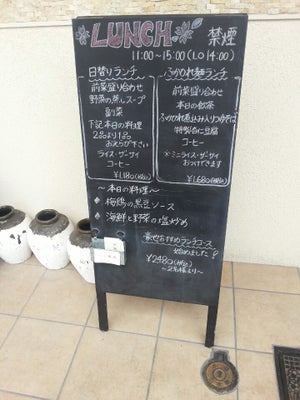 LUNCH 禁煙
11:00~15:00(L.O 14:00)
日替りランチ
前菜盛り合わせ
野菜の蒸しスープ
副菜
下記本日の料理
2品より1品
お選び下さい
ライス・ザーサイ
コーヒー
¥1,180(税込)
ふかひれ麺ランチ
前菜盛り合わせ
本日の飲茶
ふかひれ煮込み入りつゆそば
特製杏仁豆腐
コーヒー
※ミニライス・ザーサイ
おつけできます
¥1,680(税込)
~本日の料理~
◆ 梅鶏の黒豆ソース
◆ 海鮮と野菜の塩炒め
おすすめランチコース
始めました
¥2480(税込)
~2名様より~